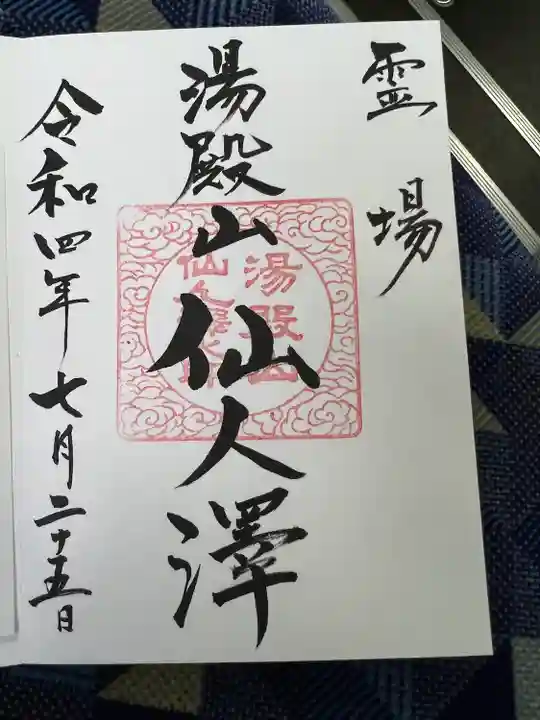 霊場
湯殿山仙人澤
湯殿山
令和四年七月二十五日